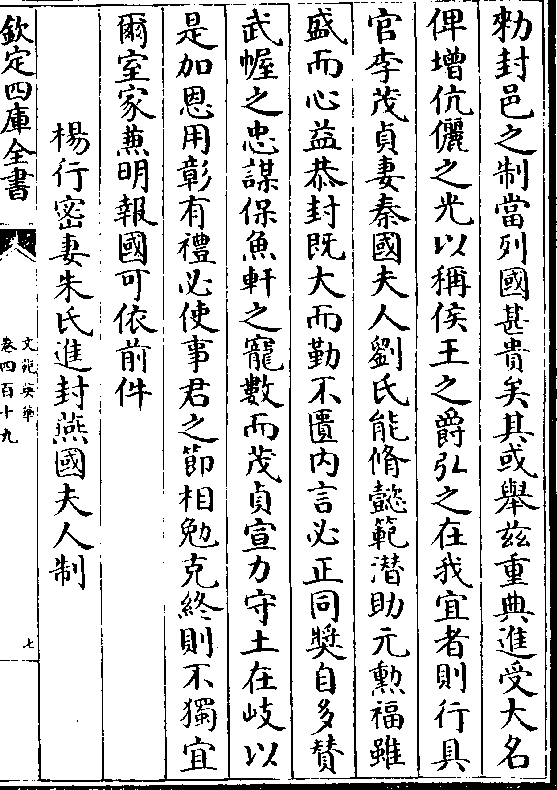 勅封邑之制當列國甚貴矣其或舉兹重典進受大名
俾增伉儷之光以稱侯王之爵弘之在我宜者則行具
官李茂貞妻秦國夫人劉氏能脩懿範潛助元勲福雖
盛而心益恭封既大而勤不匱内言必正同奬自多賛
武幄之忠謀保魚軒之寵數而茂貞宣力守土在岐以
是加恩用彰有禮必使事君之節相勉克終則不獨宜
爾室家蕪明報國可依前件
楊行密妻朱氏進封燕國夫人制
欽定四庫全書
文苑英華
卷四百十九
七